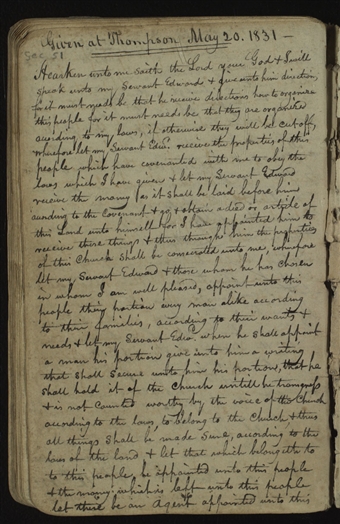 Given at Thompson May 20. 1831 —
Sec. 51
Hearken unto me saith the Lord your God & I will
speak unto my Servant Edward & give unto him directions
for it must needs be that he receive directions how to organize
this people for it must needs be that they are organized
according to my laws, if otherwise they will be cut off,
wherefore let my Servant Edw. receive the properties of this
people which have covenanted with me to obey the
laws which I have given & let my Servant Edward
receive the money as it shall be laid before him
according to the Covenant & go & obtain a deed or article of
this Land unto himself for I have appointed him to
receive these things & thus through him the properties
of this Church shall be consecrated unto me, wherefore
let my Servant Edward & those whom he has chosen
in whom I am well pleased, appoint unto this
people their portion every man alike according
to their families, according to their wants &
needs & let my Servant Edw. when he shall appoint
a man his portion give unto him a writing
that shall secure unto him his portion, that he
shall hold it of the Church untill he transgress
& is not counted worthy by the voice of the Church
according to the laws, to belong to the Church & thus
all things shall be made sure, according to the
laws of the land & let that which belongeth to
to this people be appointed unto this people
& the money which is left unto this people
let there be an Agent appointed unto this